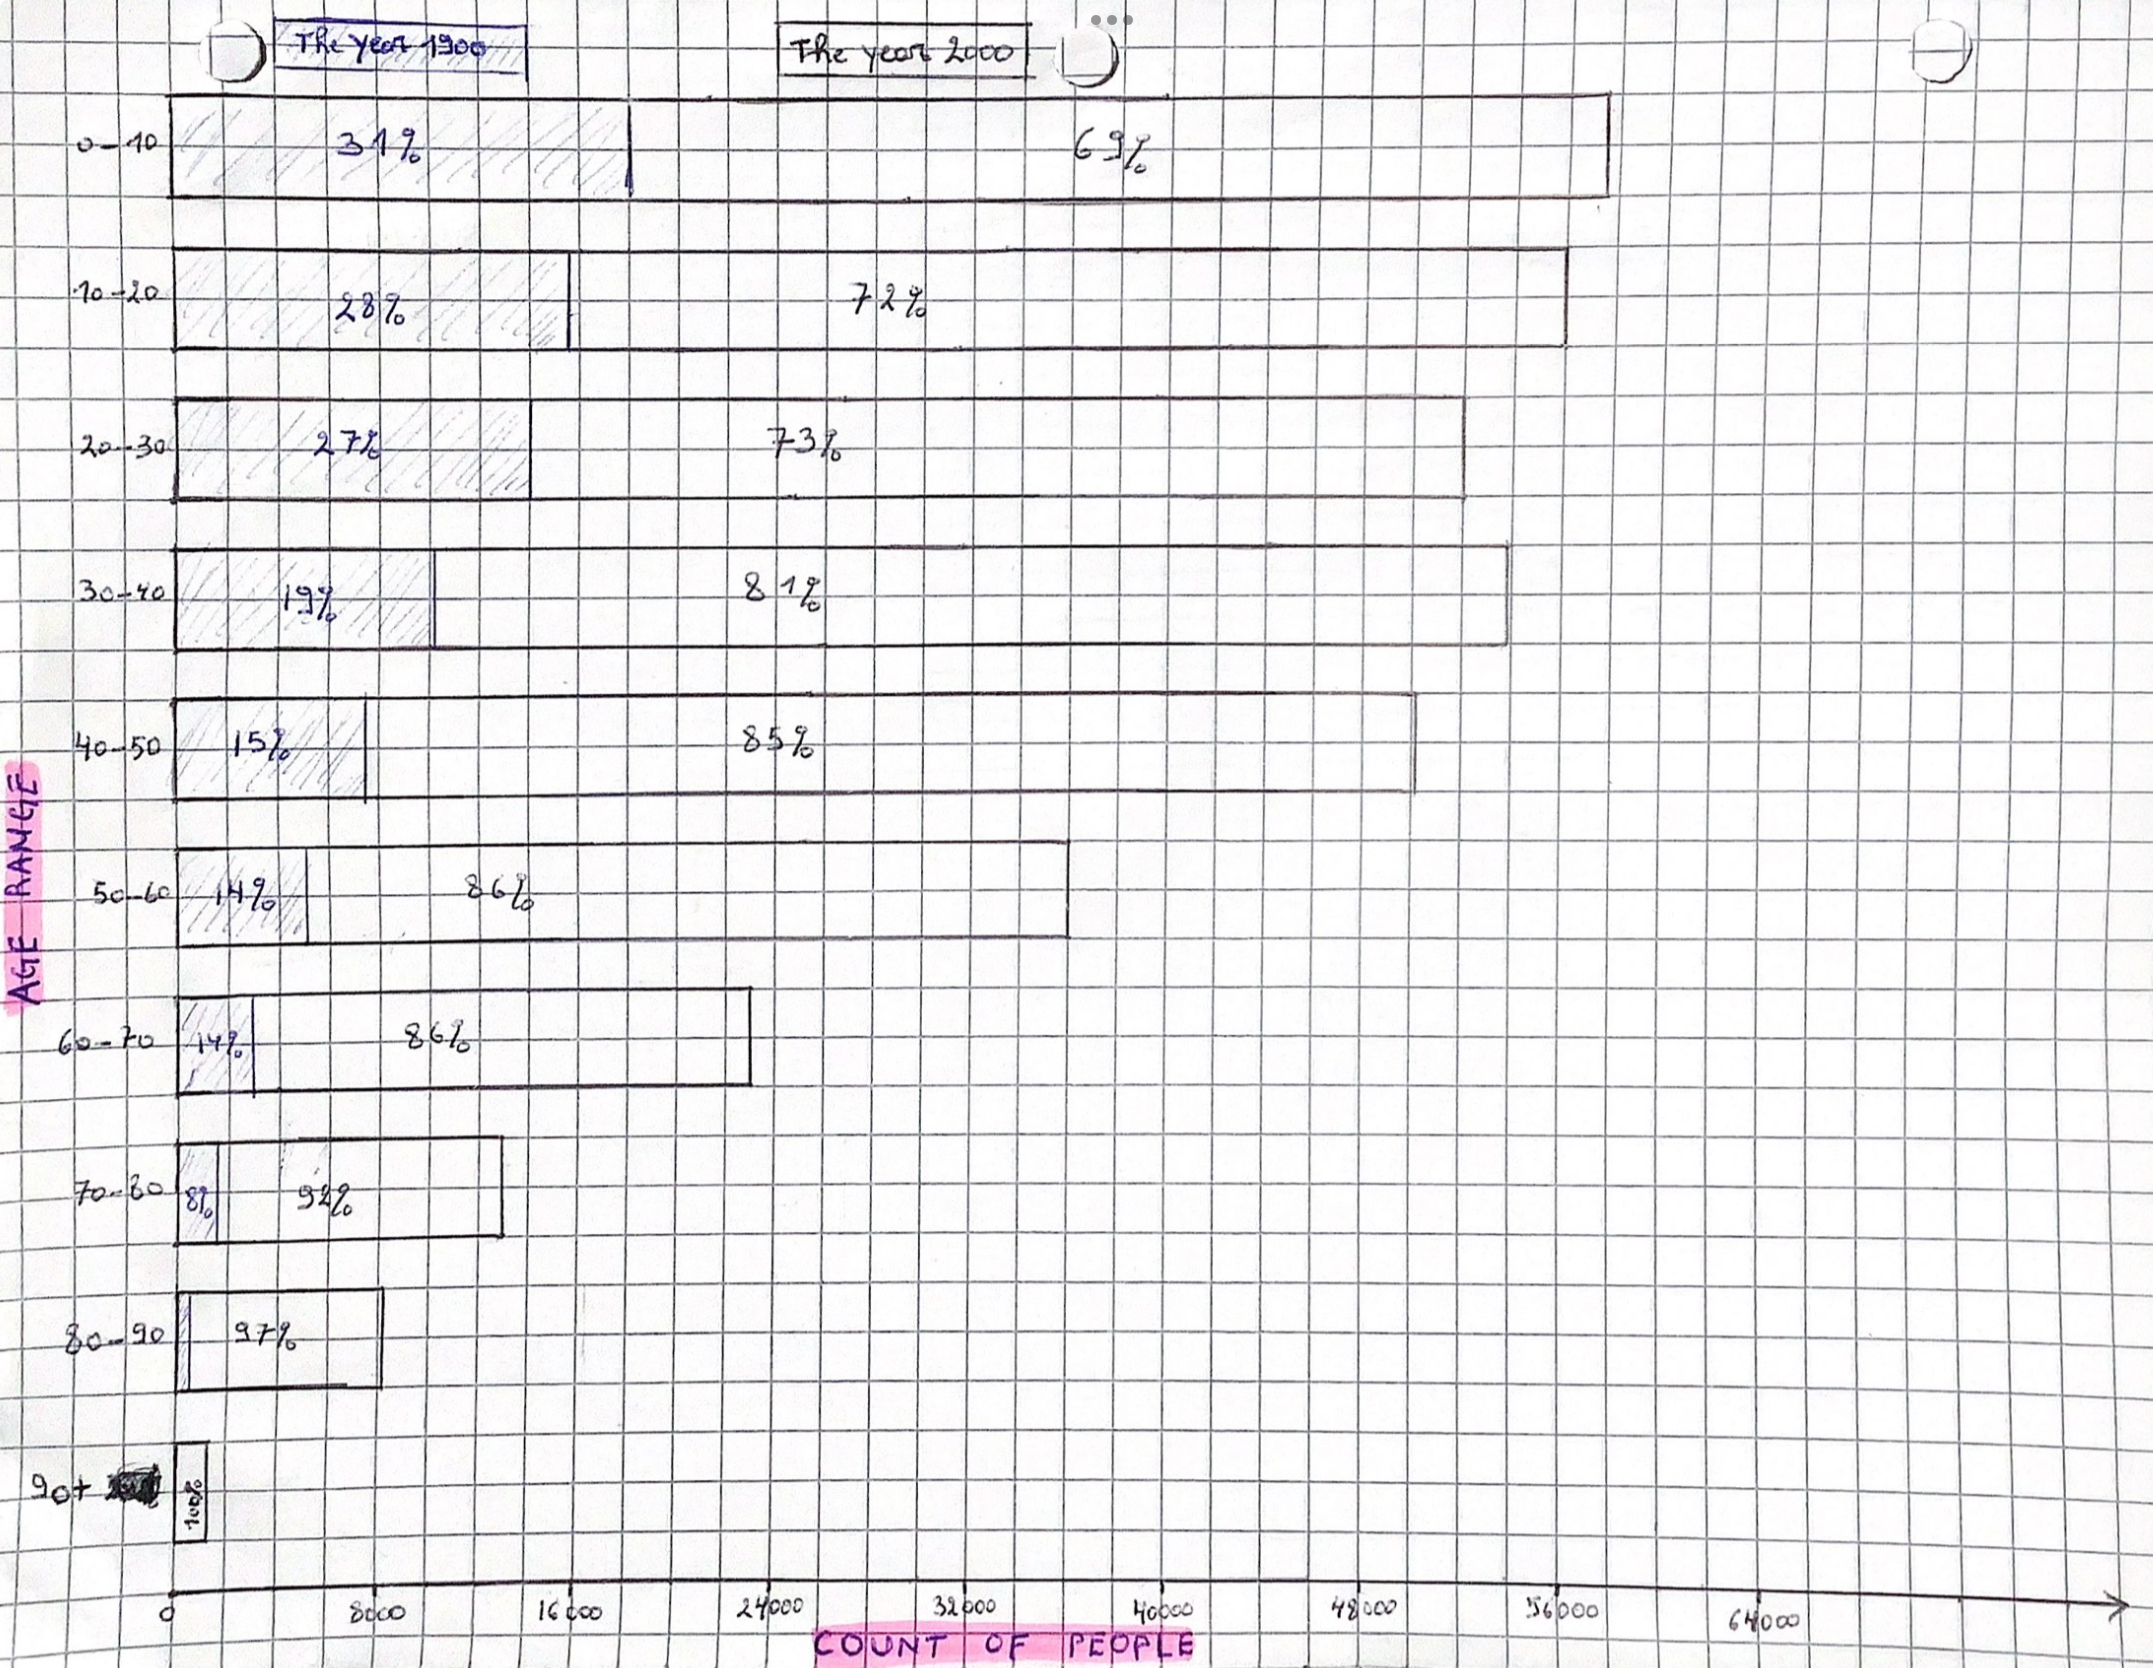 The year 1900
The year 2000
0-10
31%
69%
10-20
28%
72%
20-30
27%
73%
30-40
19%
81%
40-50
15%
85%
AGE RANGE
50-60
14%
86%
60-70
14%
86%
70-80
8%
92%
80-90
97%
90+
100%
0 8000 16000 24000 32000 40000 48000 56000 64000
COUNT OF PEOPLE